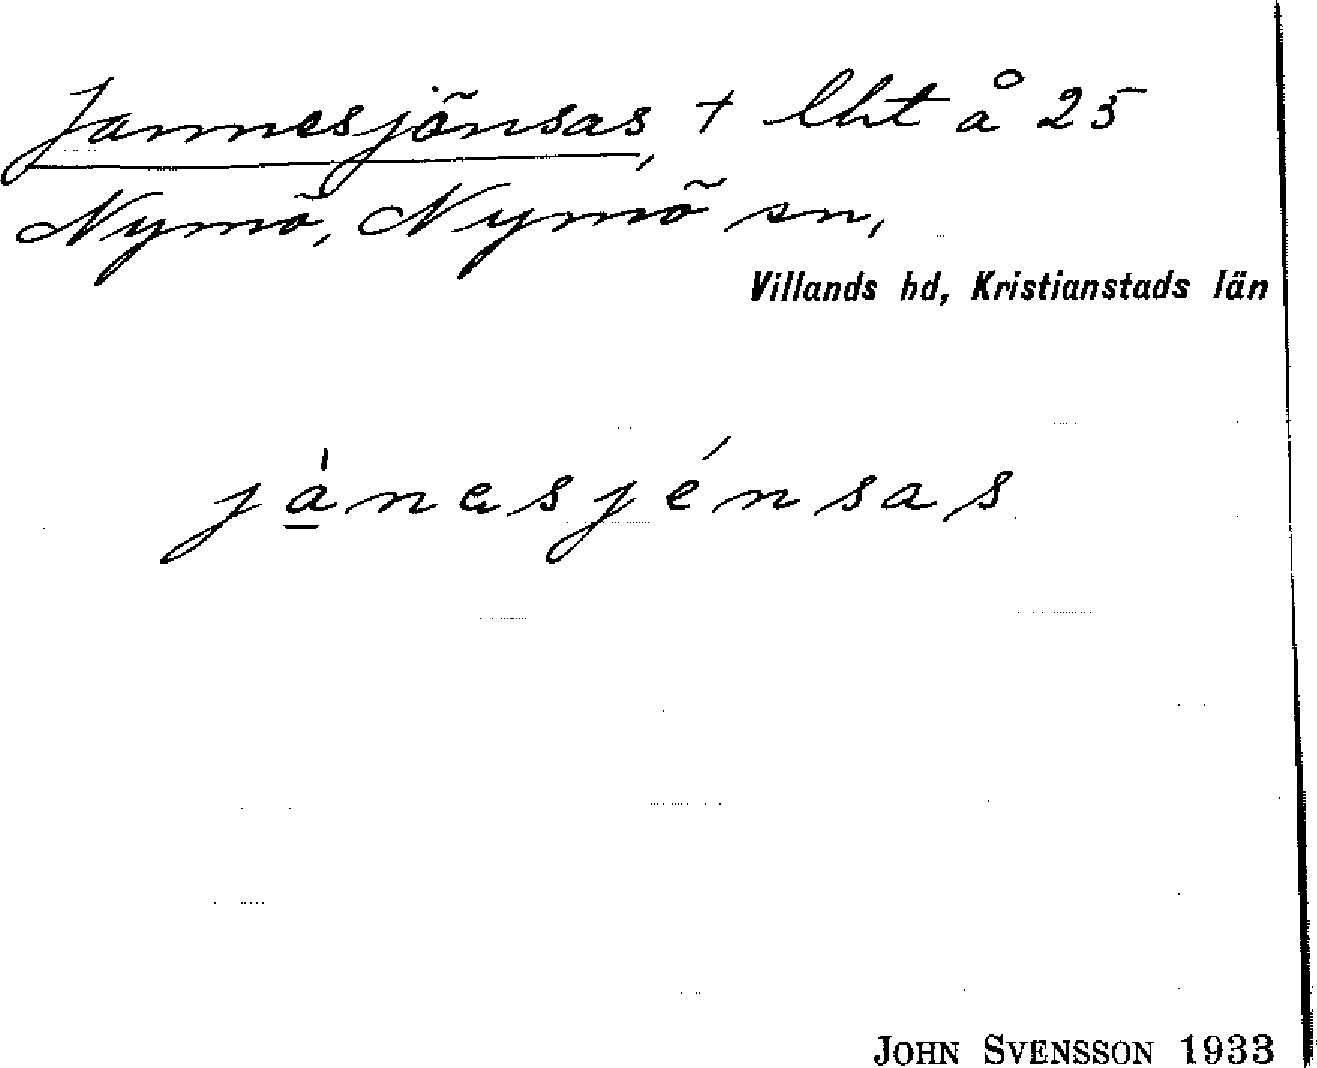 Jannesjönsas, + lht å 25
Nymö, Nymö sn,
Villands hd, Kristianstads län
jànesjénsas
JOHN SVENSSON 1933